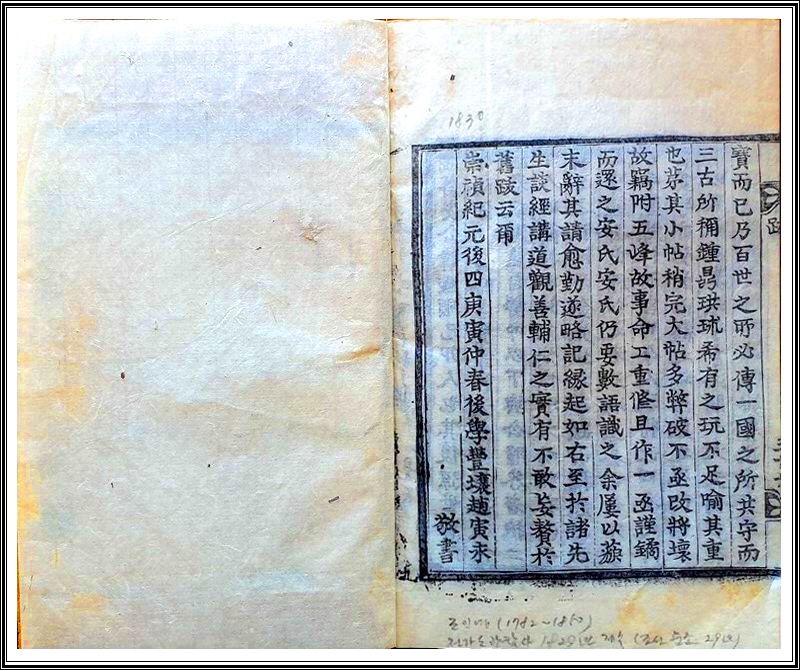 1830
跋
寶而已乃百世之所必傳一國之所共守而
三古所稱鍾鼎珙球希有之玩不足喻其重
也苐其小帖稍完大帖多弊破不亟改將壞
故竊附五峰故事命工重修且作一函謹鐍
而還之安氏安氏仍要數語識之余屢以蕪
末辭其請愈勤遂略記緣起如右至於諸先
生談經講道觀善輔仁之實有不敢妄贅於
舊跋云爾
崇禎紀元後四庚寅仲春後學豐壤趙寅永
敬書
조인영 (1782~1850)
전라도관찰사 1829년 제수 (조선 순조 29년)